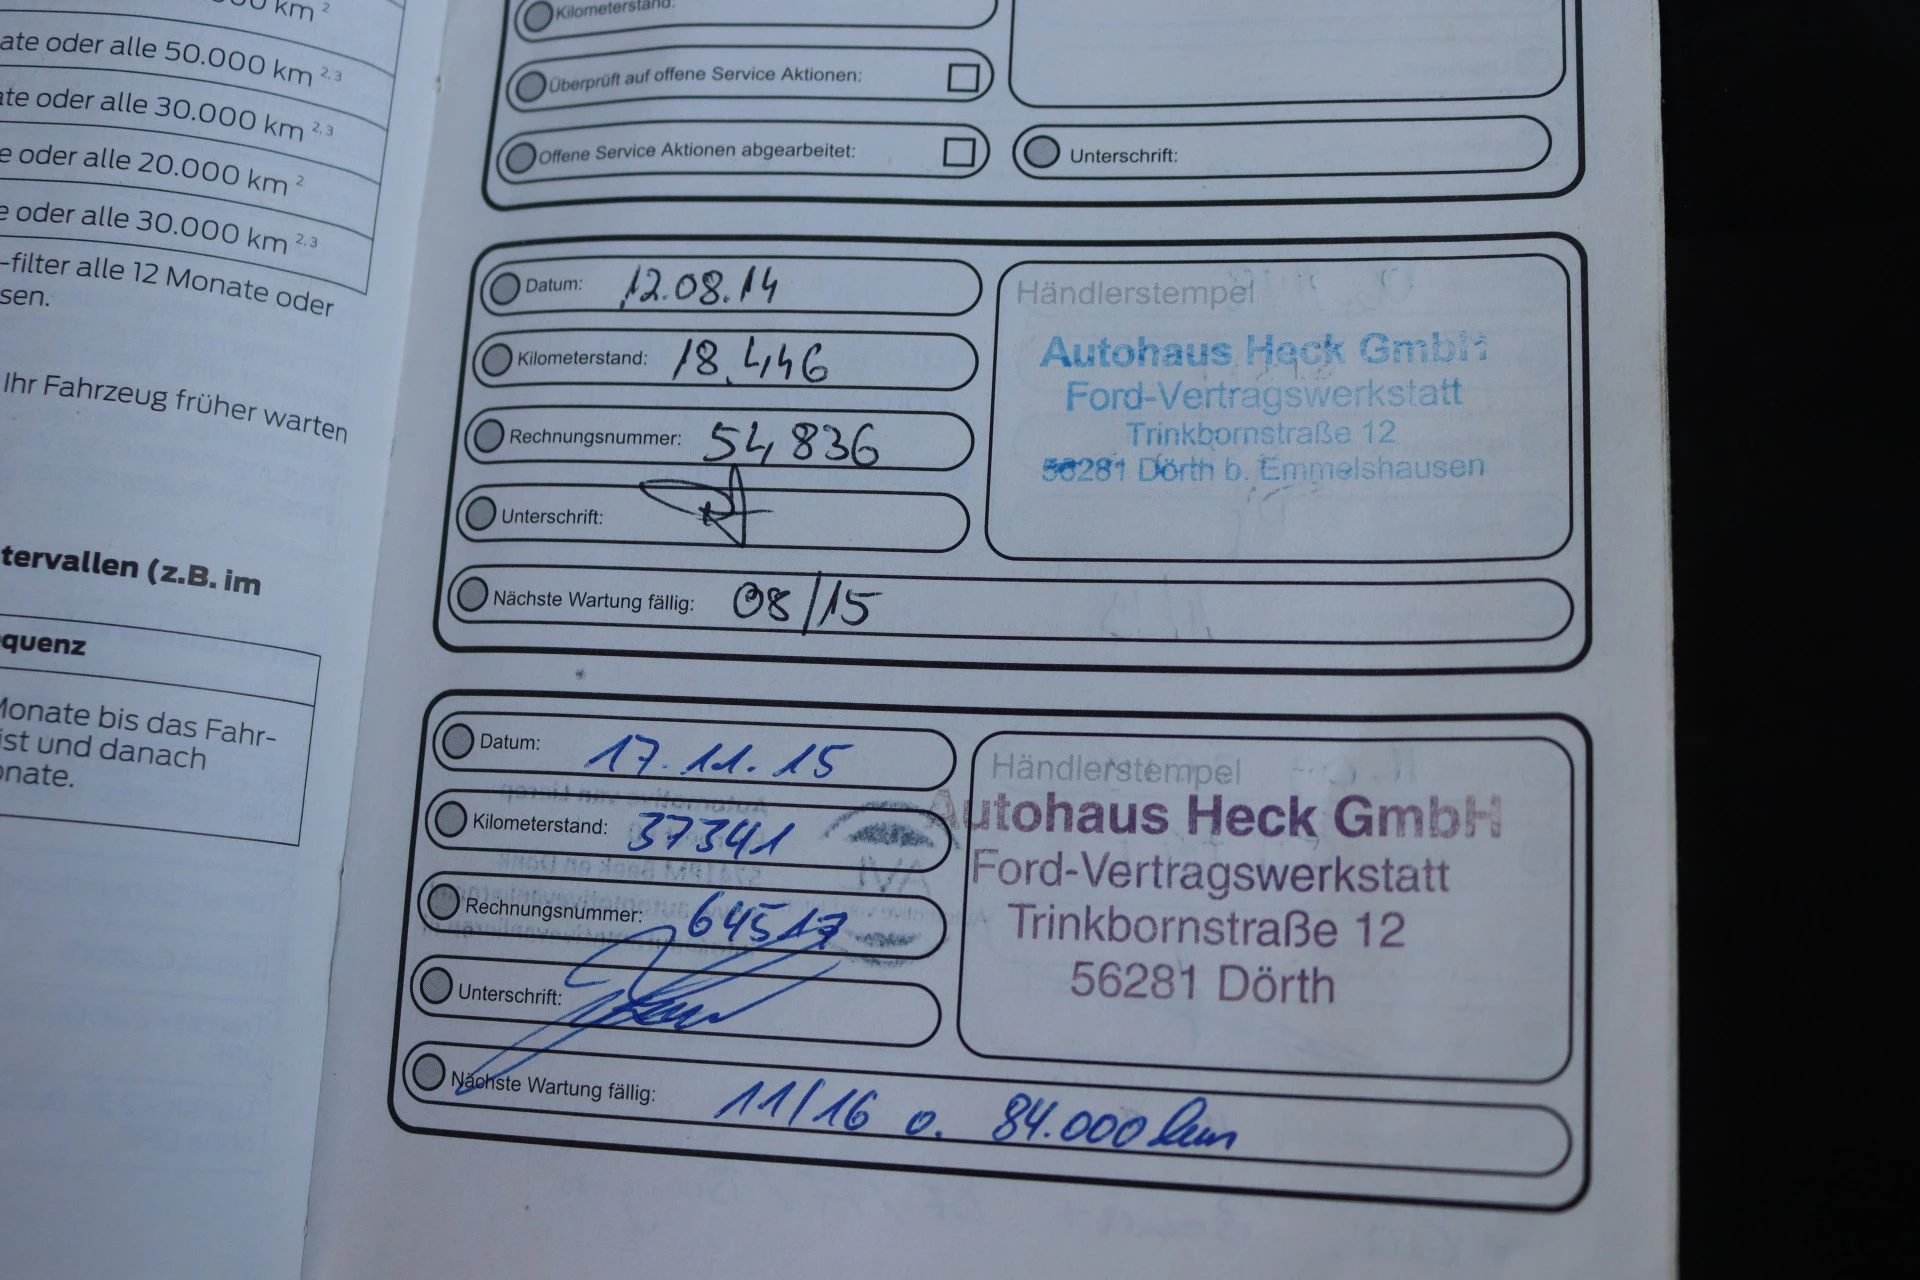 km ²
ate oder alle 50.000 km 2,3
ate oder alle 30.000 km 2,3
e oder alle 20.000 km 2
e oder alle 30.000 km 2,3
-filter alle 12 Monate oder
sen.
Ihr Fahrzeug früher warten
tervallen (z.B. im
quenz
Monate bis das Fahr-
ist und danach
onate.
Kilometerstand:
Überprüft auf offene Service Aktionen:
Offene Service Aktionen abgearbeitet:
Unterschrift:
Datum: 12.08.14
Kilometerstand: 18.446
Rechnungsnummer: 54836
Unterschrift:
Händlerstempel
Autohaus Heck GmbH
Ford-Vertragswerkstatt
Trinkbornstraße 12
56281 Dörth b. Emmelshausen
Nächste Wartung fällig: 08/15
Datum: 17.11.15
Kilometerstand: 37341
Rechnungsnummer: 64517
Unterschrift:
Händlerstempel
Autohaus Heck GmbH
Ford-Vertragswerkstatt
Trinkbornstraße 12
56281 Dörth
Nächste Wartung fällig: 11/16 o. 84.000 km